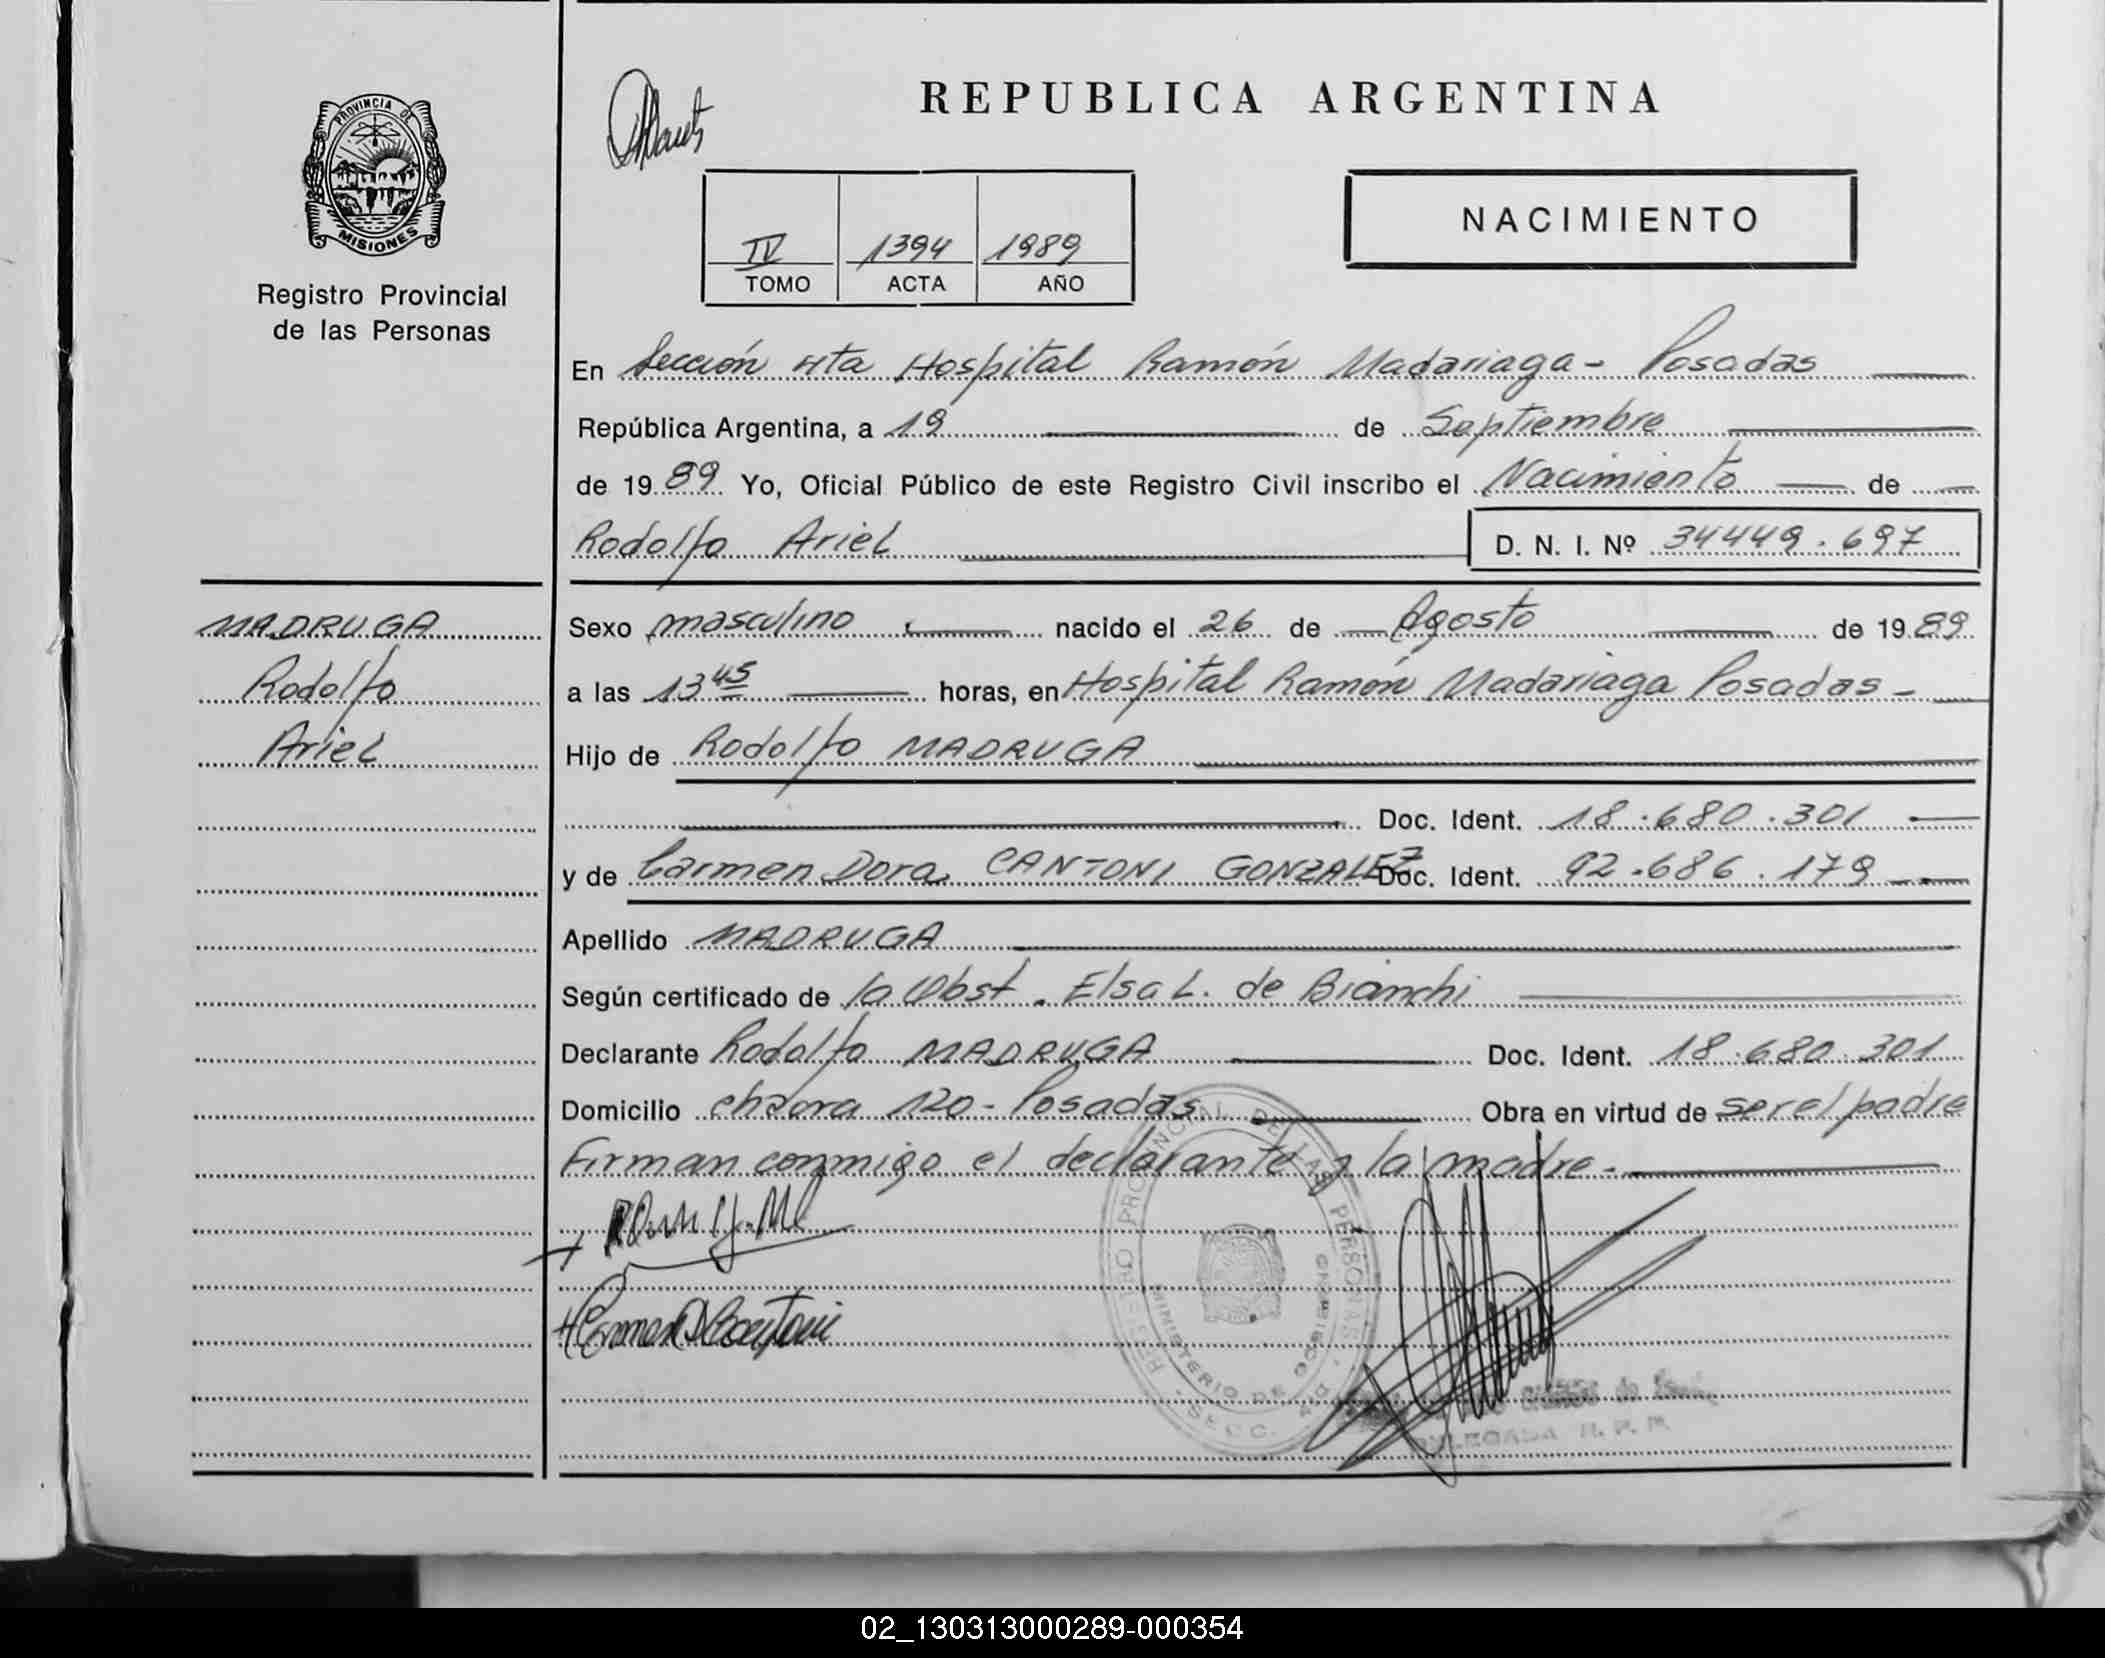 REPUBLICA ARGENTINA
PROVINCIA DE
MISIONES
Registro Provincial
de las Personas
NACIMIENTO
IV 1394 1989
TOMO ACTA AÑO
En Sección 4ta Hospital Ramón Madariaga - Posadas
República Argentina, a 19 de Septiembre
de 1989 Yo, Oficial Público de este Registro Civil inscribo el Nacimiento de
Rodolfo Ariel D. N. I. Nº 34449.697
MADRUGA
Rodolfo
Ariel
Sexo masculino nacido el 26 de Agosto de 1989
a las 13 45 horas, en Hospital Ramón Madariaga Posadas -
Hijo de Rodolfo MADRUGA
Doc. Ident. 18.680.301
y de Carmen Dora CANTONI GONZALEZ Doc. Ident. 92.686.179
Apellido MADRUGA
Según certificado de la Obst. Elsa L. de Bianchi
Declarante Rodolfo MADRUGA Doc. Ident. 18.680.301
Domicilio chacra 120 - Posadas Obra en virtud de ser el padre
Firman conmigo el declarante y la madre.
REGISTRO PROVINCIAL DE LAS PERSONAS
MINISTERIO DE GOBIERNO
SECC. 4ta
Carmen D Cantoni
DELEGADA R. P. P.
02_130313000289-000354